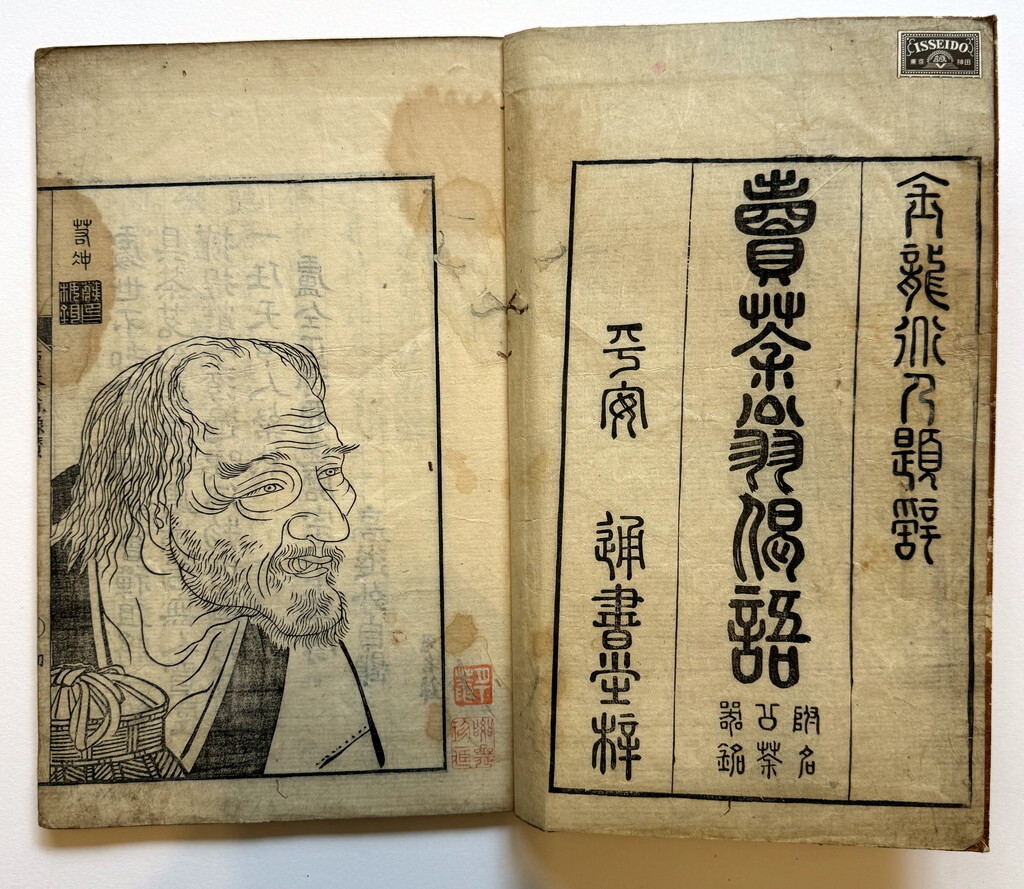 ISSEIDO
東京 神田
金龍道人題辭
賣茶翁偈語
附名
公茶
器銘
平安 通書堂梓
若冲